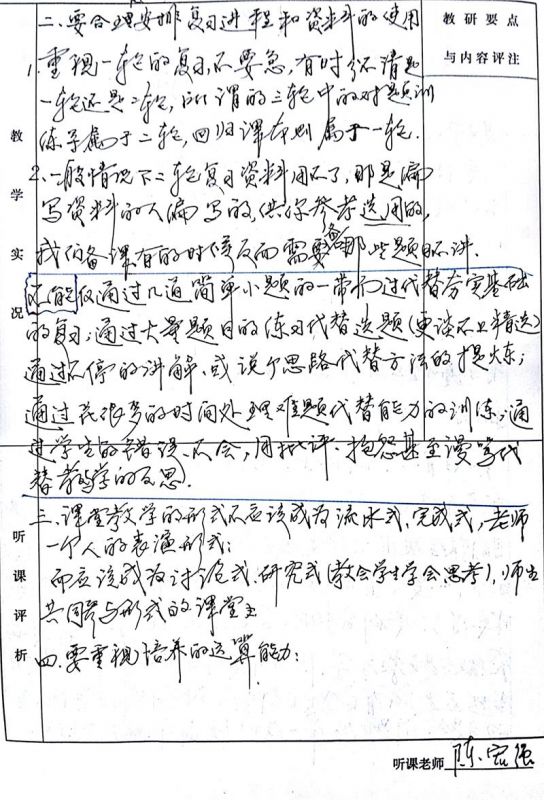 二、要合理安排复习进程和资料的使用
教研要点
与内容评注
1. 重视一轮的复习,不要急,有时分不清是
一轮还是二轮,所谓的三轮中的对题训
练等属于二轮,回归课本则属于一轮.
2. 一般情况下二轮复习资料用不了,那是编
写资料的人编写的,供你参考选用的,
我们备课,有的时候反而需要那些题目不讲.
不能仅通过几道简单小题的一带而过代替夯实基础
的复习;通过大量题目的练习代替选题(更谈不上精选)
通过不停的讲解、或说个思路代替方法的提炼;
通过花很多的时间处理难题代替能力的训练;通
过学生的错误、不会,用批评、抱怨甚至谩骂代
替教学的反思.
三、课堂教学的形式不应该成为流水式,完成式,老师
一个人的表演形式;
而应该成为讨论式、研究式(教会学生学会思考),师生
共同参与形式的课堂
四、要重视培养的运算能力:
教学实况
听课评析
听课老师 陈宏强